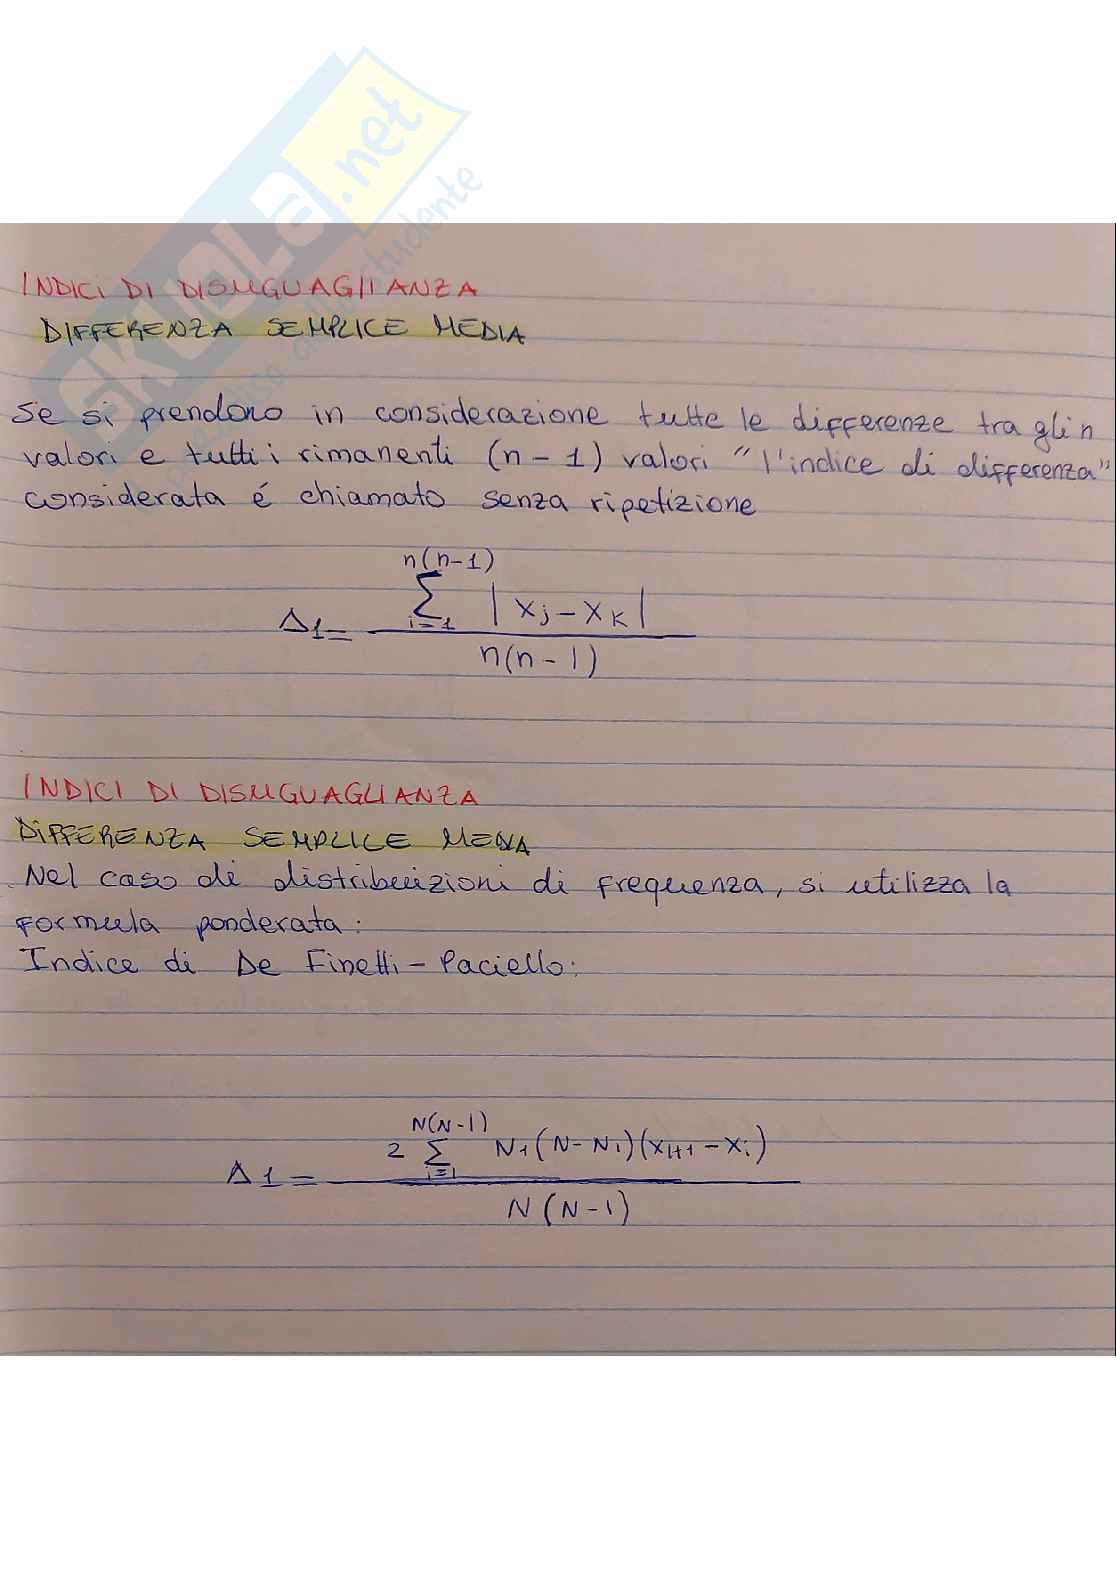 SKUOLA.net
INDICI DI DISUGUAGLIANZA
DIFFERENZA SEMPLICE MEDIA
Se si prendono in considerazione tutte le differenze tra gli n
valori e tutti i rimanenti (n-1) valori "l'indice di differenza"
considerata é chiamato senza ripetizione
n(n-1)
Σ |xj-xK|
i=1
Δ1=
n(n-1)
INDICI DI DISUGUAGLIANZA
DIFFERENZA SEMPLICE MEDIA
Nel caso di distribuizioni di frequenza, si utilizza la
formula ponderata:
Indice di De Finetti-Paciello:
N(N-1)
2 Σ N1(N-Ni)(xi+1-xi)
i=1
Δ1=
N(N-1)